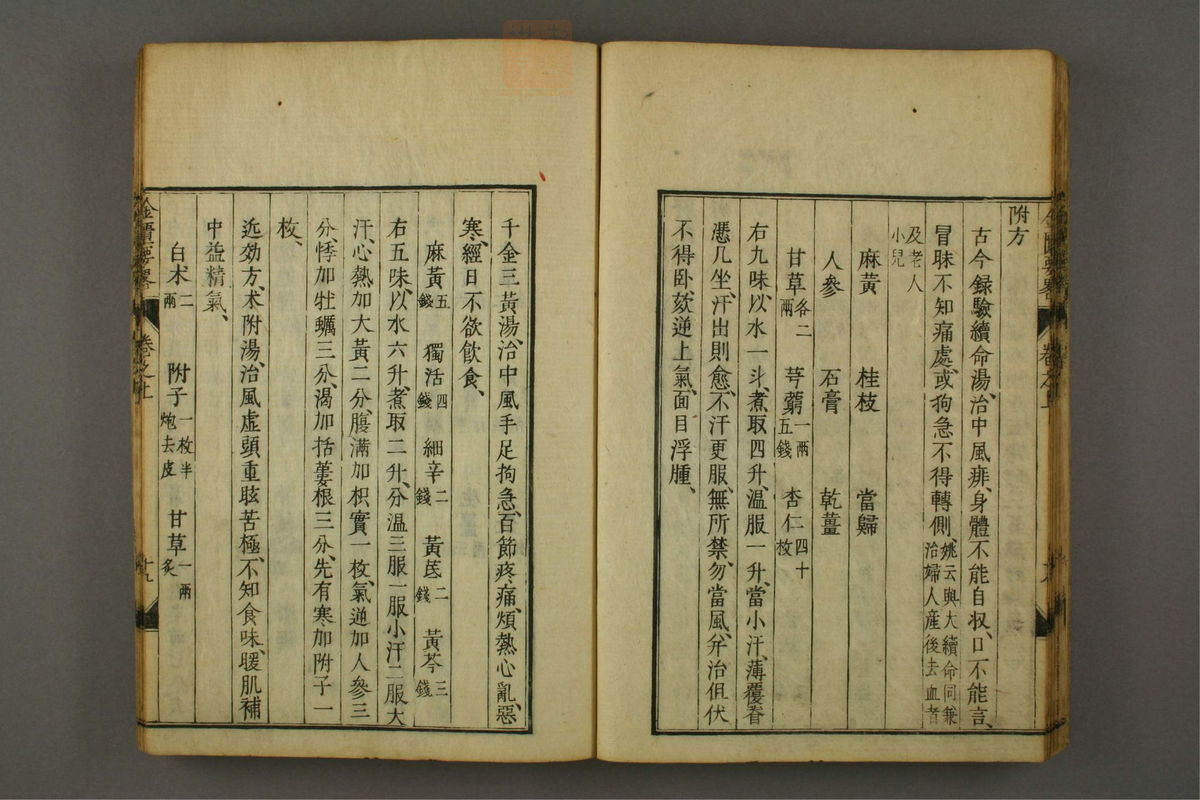 附方
古今録驗續命湯、治中風痱、身體不能自収、口不能言、
冒昧不知痛處、或拘急不得轉側、姚云與大續命同兼治婦人産後去血者
及老人小兒
麻黄 桂枝 當歸
人參 石膏 乾薑
甘草各二兩 芎藭一兩五錢 杏仁四十枚
右九味、以水一斗、煮取四升、温服一升、當小汗、薄覆脊、
憑几坐、汗出則愈、不汗更服、無所禁、勿當風、并治但伏
不得卧、欬逆上氣、面目浮腫、
千金三黄湯、治中風手足拘急、百節疼痛、煩熱心亂、惡
寒、經日不欲飲食、
麻黄五錢 獨活四錢 細辛二錢 黄芪二錢 黄芩三錢
右五味、以水六升、煮取二升、分温三服、一服小汗、二服大
汗、心熱加大黄二分、腹滿加枳實一枚、氣逆加人參三
分、悸加牡蠣三分、渴加括蔞根三分、先有寒加附子一
枚、
近効方、术附湯、治風虚頭重眩苦極、不知食味、暖肌補
中益精氣、
白术二兩 附子一枚半炮去皮 甘草一兩炙
金匱要畧 卷之上 十九